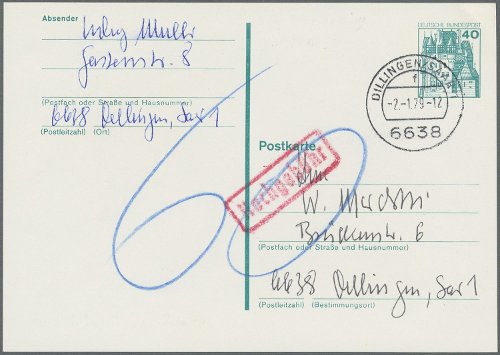 Absender
Gartenstr. 8
(Postfach oder Straße und Hausnummer)
6638 Dillingen, Saar 1
(Postleitzahl) (Ort)
DEUTSCHE BUNDESPOST
40
DILLINGEN, SAAR 1
f
-2.-1.79-12
6638
Postkarte
Nachgebühr
60
W.
Brückenstr. 6
(Postfach oder Straße und Hausnummer)
6638 Dillingen, Saar 1
(Postleitzahl) (Bestimmungsort)